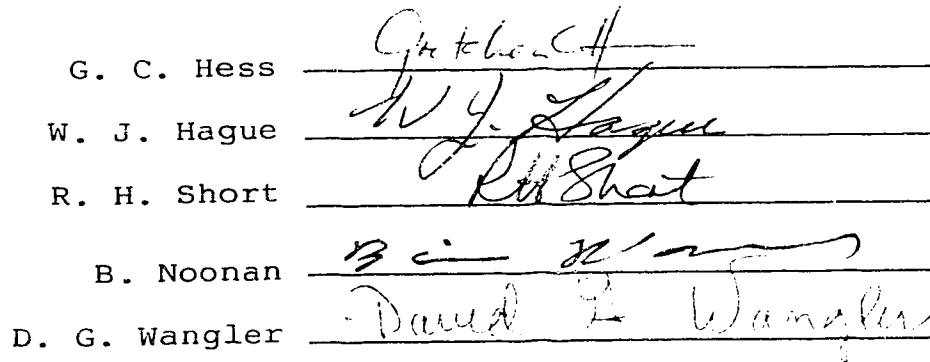 G. C. Hess Gretchen C H
W. J. Hague W J. Hague
R. H. Short RH Short
B. Noonan
D. G. Wangler David G Wangler